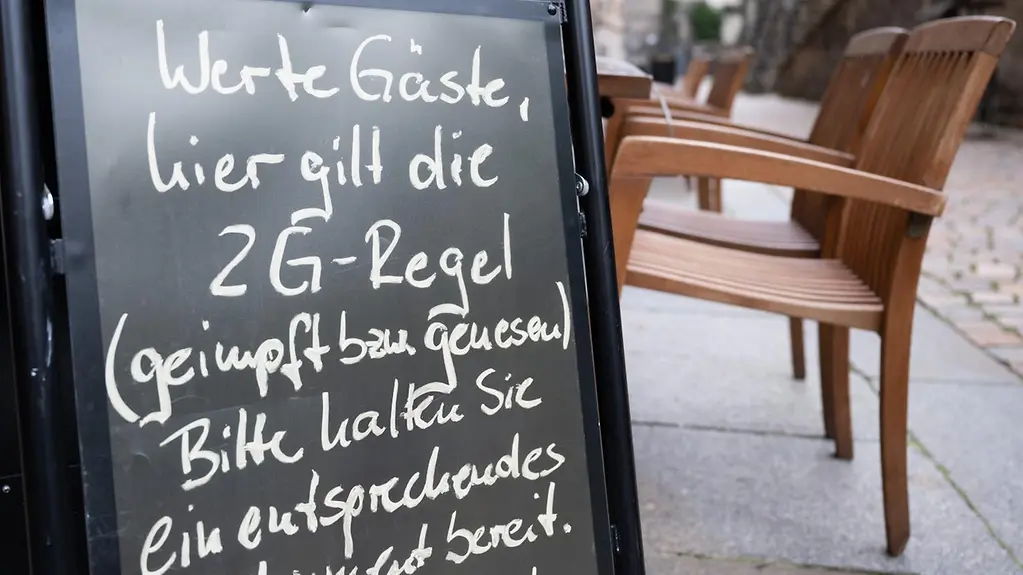 Werte Gäste,
hier gilt die
2G-Regel
(geimpft bzw. genesen)
Bitte halten Sie
ein entsprechendes
bereit.